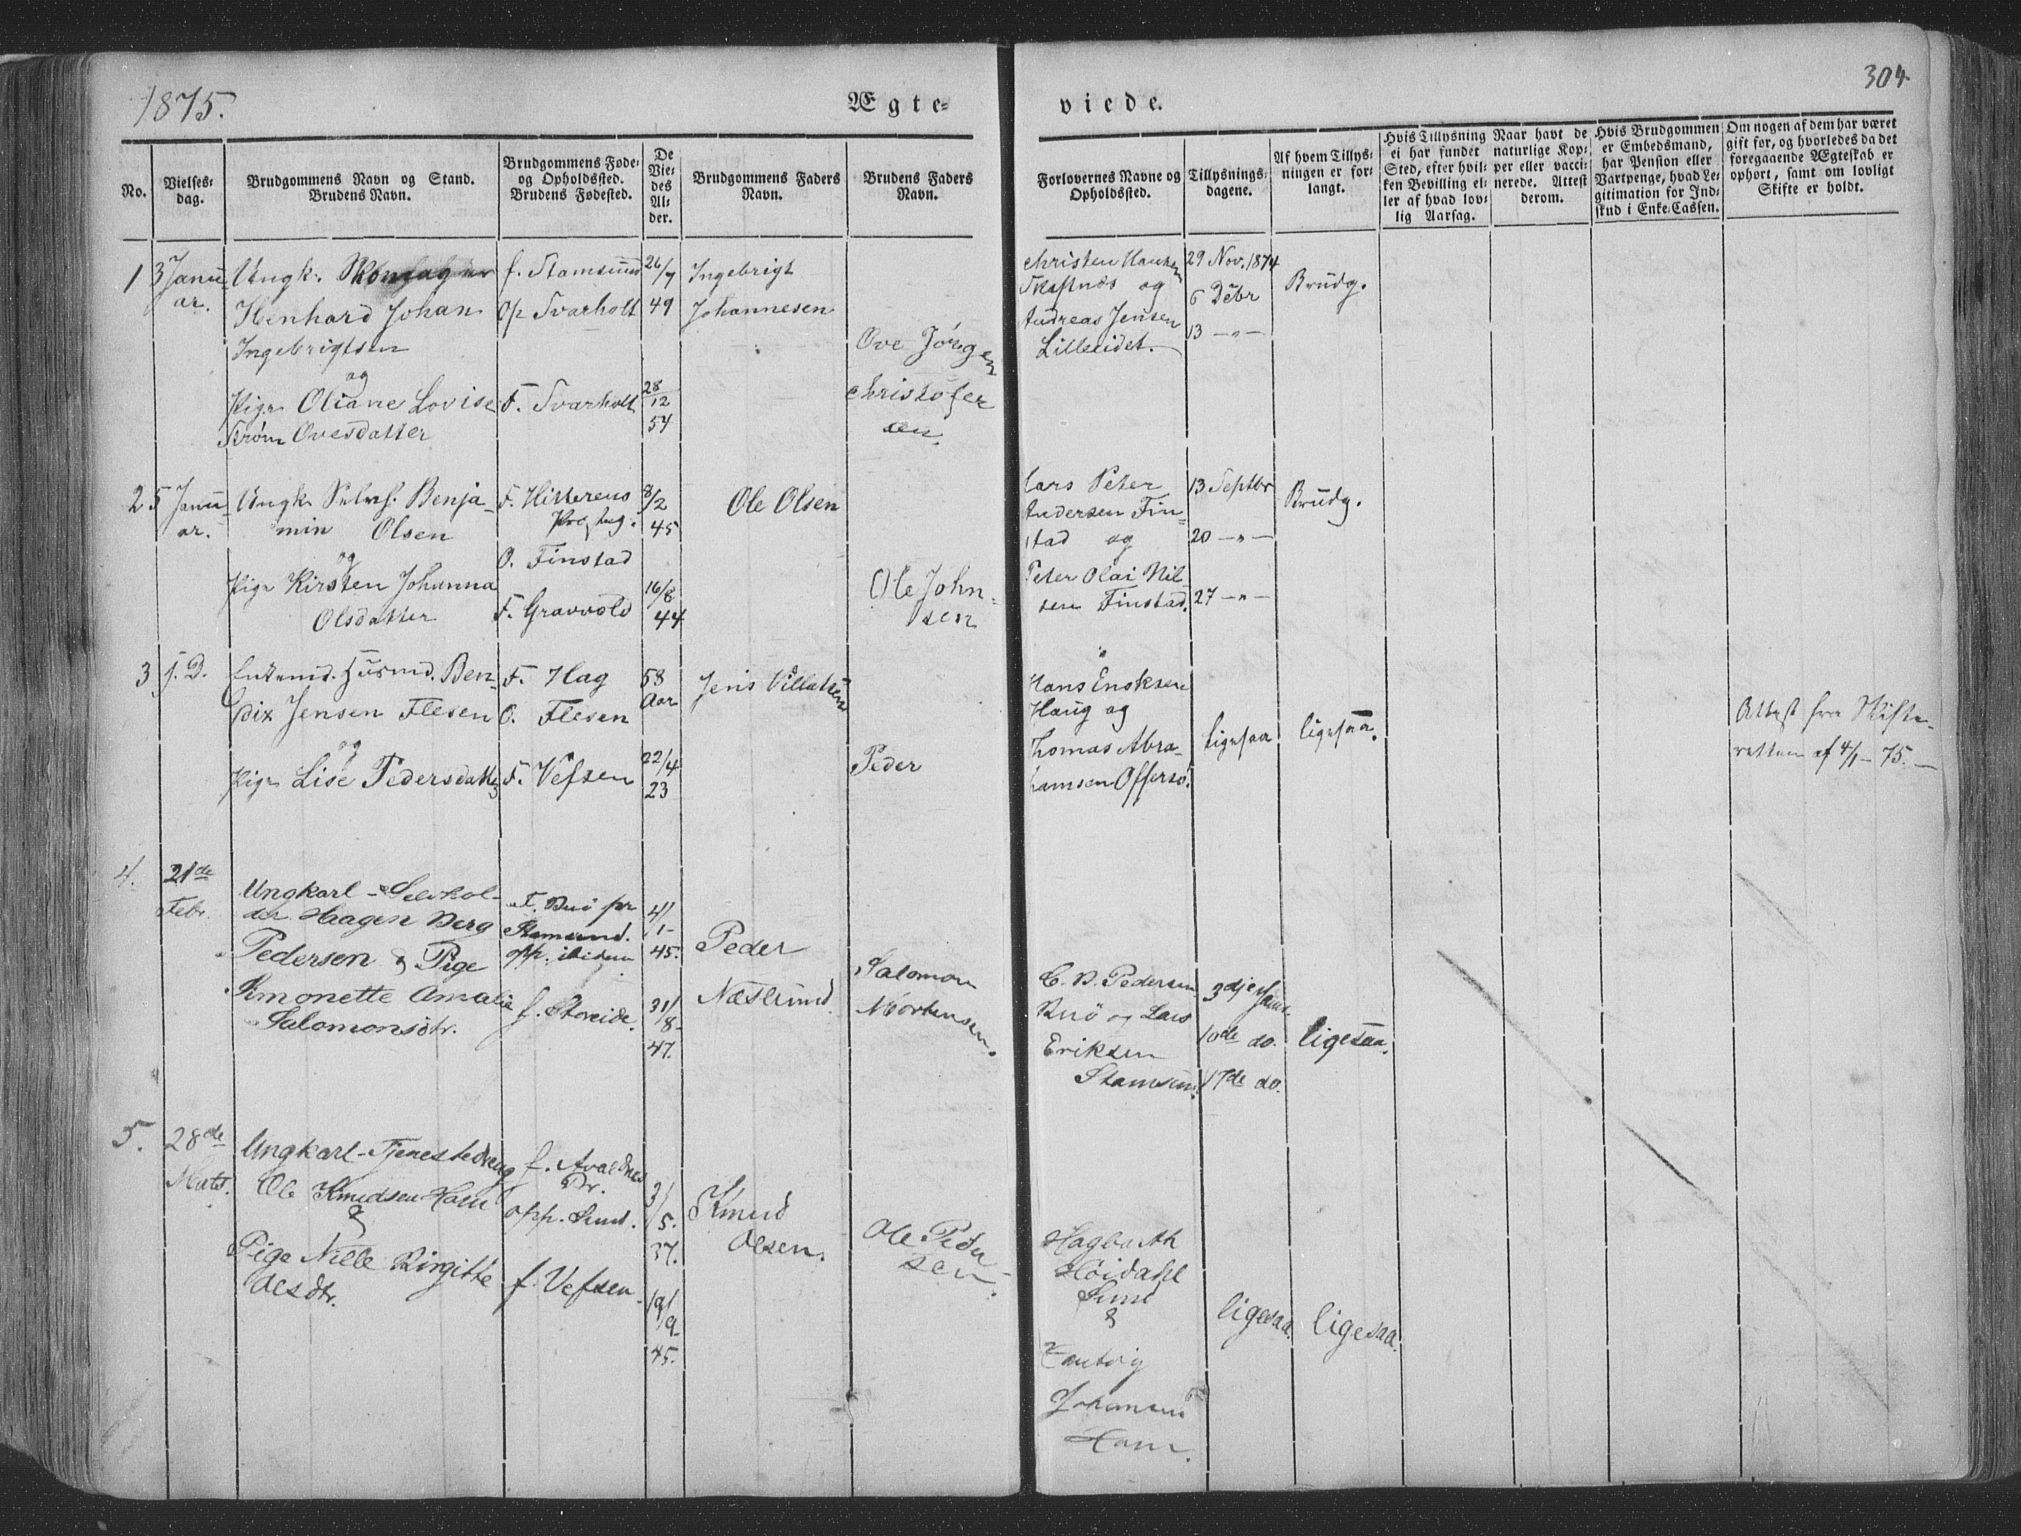 1875.
Ægte-
viede.
304
No.
Vielses-
dag.
Brudgommens Navn og Stand.
Brudens Navn.
Brudgommens Føde-
og Opholdssted.
Brudens Fødested.
De
Vie-
des
Al-
der.
Brudgommens Faders
Navn.
Brudens Faders
Navn.
Forlovernes Navne og
Opholdssted.
Tillysnings-
dagene.
Af hvem Tillys-
ningen er for-
langt.
Hvis Tillysning
ei har fundet
Sted, efter hvil-
ken Bevilling el-
ler af hvad lov-
lig Aarsag.
Naar havt de
naturlige Kop-
per eller vacci-
nerede. Attest
derom.
Hvis Brudgommen
er Embedsmand,
har Pension eller
Vartpenge, hvad Le-
gitimation for Ind-
skud i Enke-Cassen.
Om nogen af dem har været
gift før, og hvorledes da det
foregaaende Ægteskab er
ophørt, samt om lovligt
Skifte er holdt.
1
3 Janu
ar.
Ungk.
Henhard Johan
Ingebrigtsen
og
Pige Oliane Lovise
Strøm Ovesdatter
f. Stamsund
Op Svarholt
F. Svarholt
26/7
49
28/12
54
Ingebrigt
Johannesen
Ove Jørgen
Christofer
sen.
Christen Hansen
Skaftnæs og
Andreas Jensen
Lilleeidet.
29 Nov. 1874
6 Debr
13 -"-
Brudg.
2
5 Janu
ar.
Ungk. Selvs. Benja-
min Olsen
og
Pige Kirsten Johanna
Olsdatter
F. Hitterens
Præsteg.
O. Finstad
F. Gravvold
8/2
45
16/8
44
Ole Olsen
Ole John-
sen
Lars Peter
Andersen Fin-
stad og
Peter Olai Nil-
sen Finstad.
13 Septbr
20 -"-
27 -"-
Brudg.
3
s. D.
Enkemd. Husmd. Ben-
dix Jensen Flesen
og
Pige Lise Pedersdatter
F. Hag
O. Flesen
F. Vefsen
58
Aar
22/4
23
Jens Villatsen
Peder
Hans Enoksen
Haug og
Thomas Abra-
hamsen Offersø.
ligesaa
ligesaa.
Attest fra Skifte-
retten af 4/1-75.-
4.
21de
Febr.
Ungkarl-Selvhol-
der Haagen Berg
Pedersen & Pige
Simonette Amalie
Salomonsdtr.
F. Buø pr
Stamsund.
opp. ibidem
f. Storeide.
4/
1-
45.
31/
8-
47.
Peder
Næstlund.
Salomon
Mortensen.
C. B. Pedersen
Buø og Lars
Eriksen
Stamsund.
3dje Janr.
10de do.
17de do.
ligesaa.
5.
28de
Marts.
Ungkarl-Tjenestedreng
Ole Knudsen Horn
&
Pige Nille Birgitte
Olesdtr.
f. Avaldnes
Pr.
opp. Sund.
f. Vefsen
3/
5.
37.
19/
9
45.
Knud
Olsen.
Ole Peder
sen.
Hagbarth
Høidahl
Sund
&
Johansen
Horn.
ligesaa.
ligesaa.